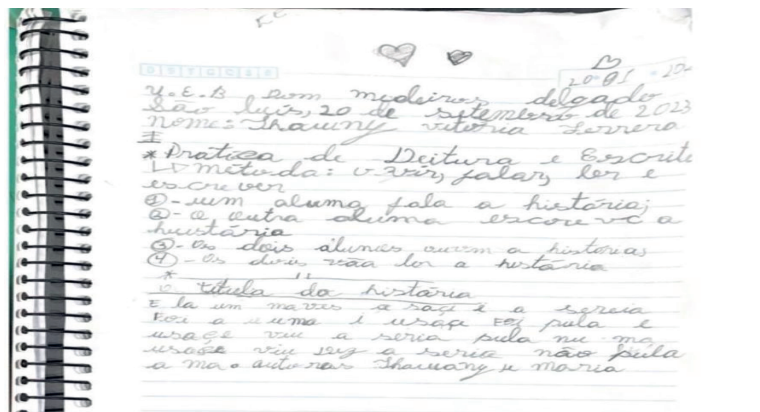 D S T Q Q S S
20-09
U.E.B Dom medeiros, delgado
São luis, 20 de setembro de 2023
nome: Thauany vitoria Ferrera
* Pratica de Leitura e Escrita
metoda: falar, ler e
escrever
①- um aluma fala a histária;
②- o outra aluma escore ve a
huistária
③- Os dois álunos ouvem a historias
④- Os dois vão ler a histária
*
titula da histária
E la um a saçi é a sereia
Foi a e usaçe Foz pula e
usaçe viu a seria pula nu ma
usaçe viu a seria não pula
a ma. autoras Thauany e maria